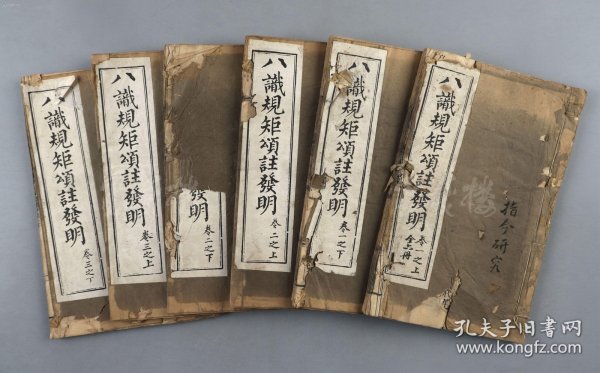 八識規矩頌註發明 卷一之上
全六冊
指今研究
八識規矩頌註發明 卷一之下
八識規矩頌註發明 卷二之上
發明 卷二之下
八識規矩頌註發明 卷三之上
識規矩頌註發明 卷三之下
樓
孔夫子旧书网
www.kongfz.com